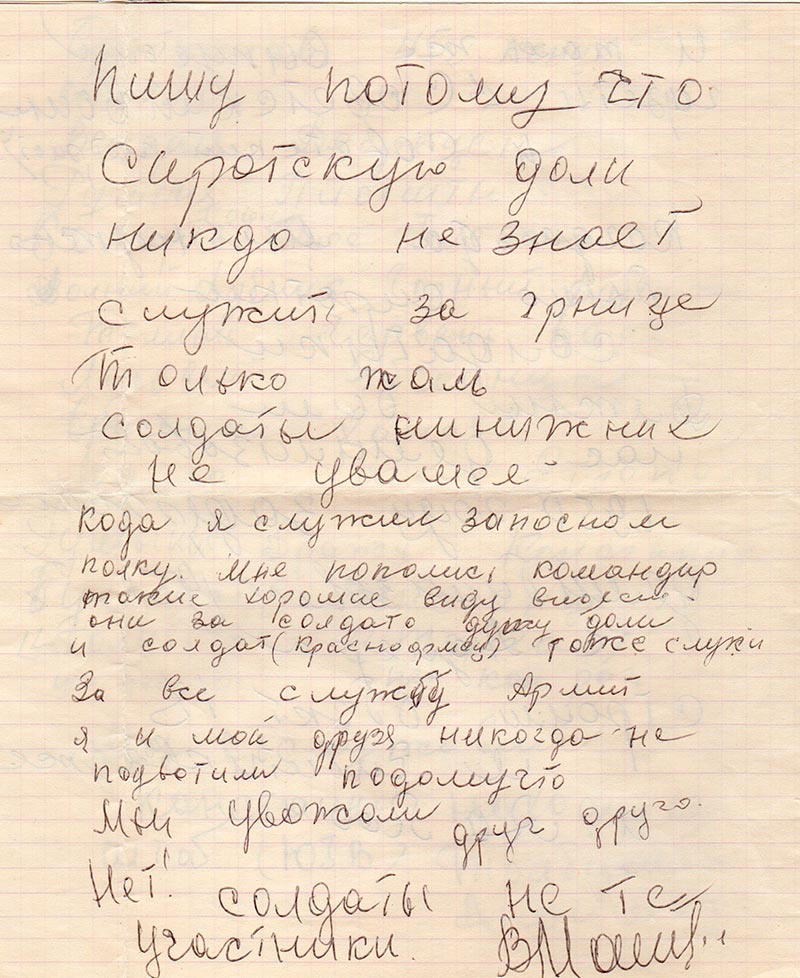 Пишу потому что
Сиротскую доли
никдо не знает
служить за грнице
Только жаль
солдаты
не
Кода я служил запосном
полку. Мне пополись командир
такие хорошие виду
они за солдато душу доли
и солдат (Красноормец) тоже служи
За все службу Армии
я и мой друзя никогда не
подвотили подомучто
Мы увожоли друг друго.
Нет! солдаты не те
Участники.